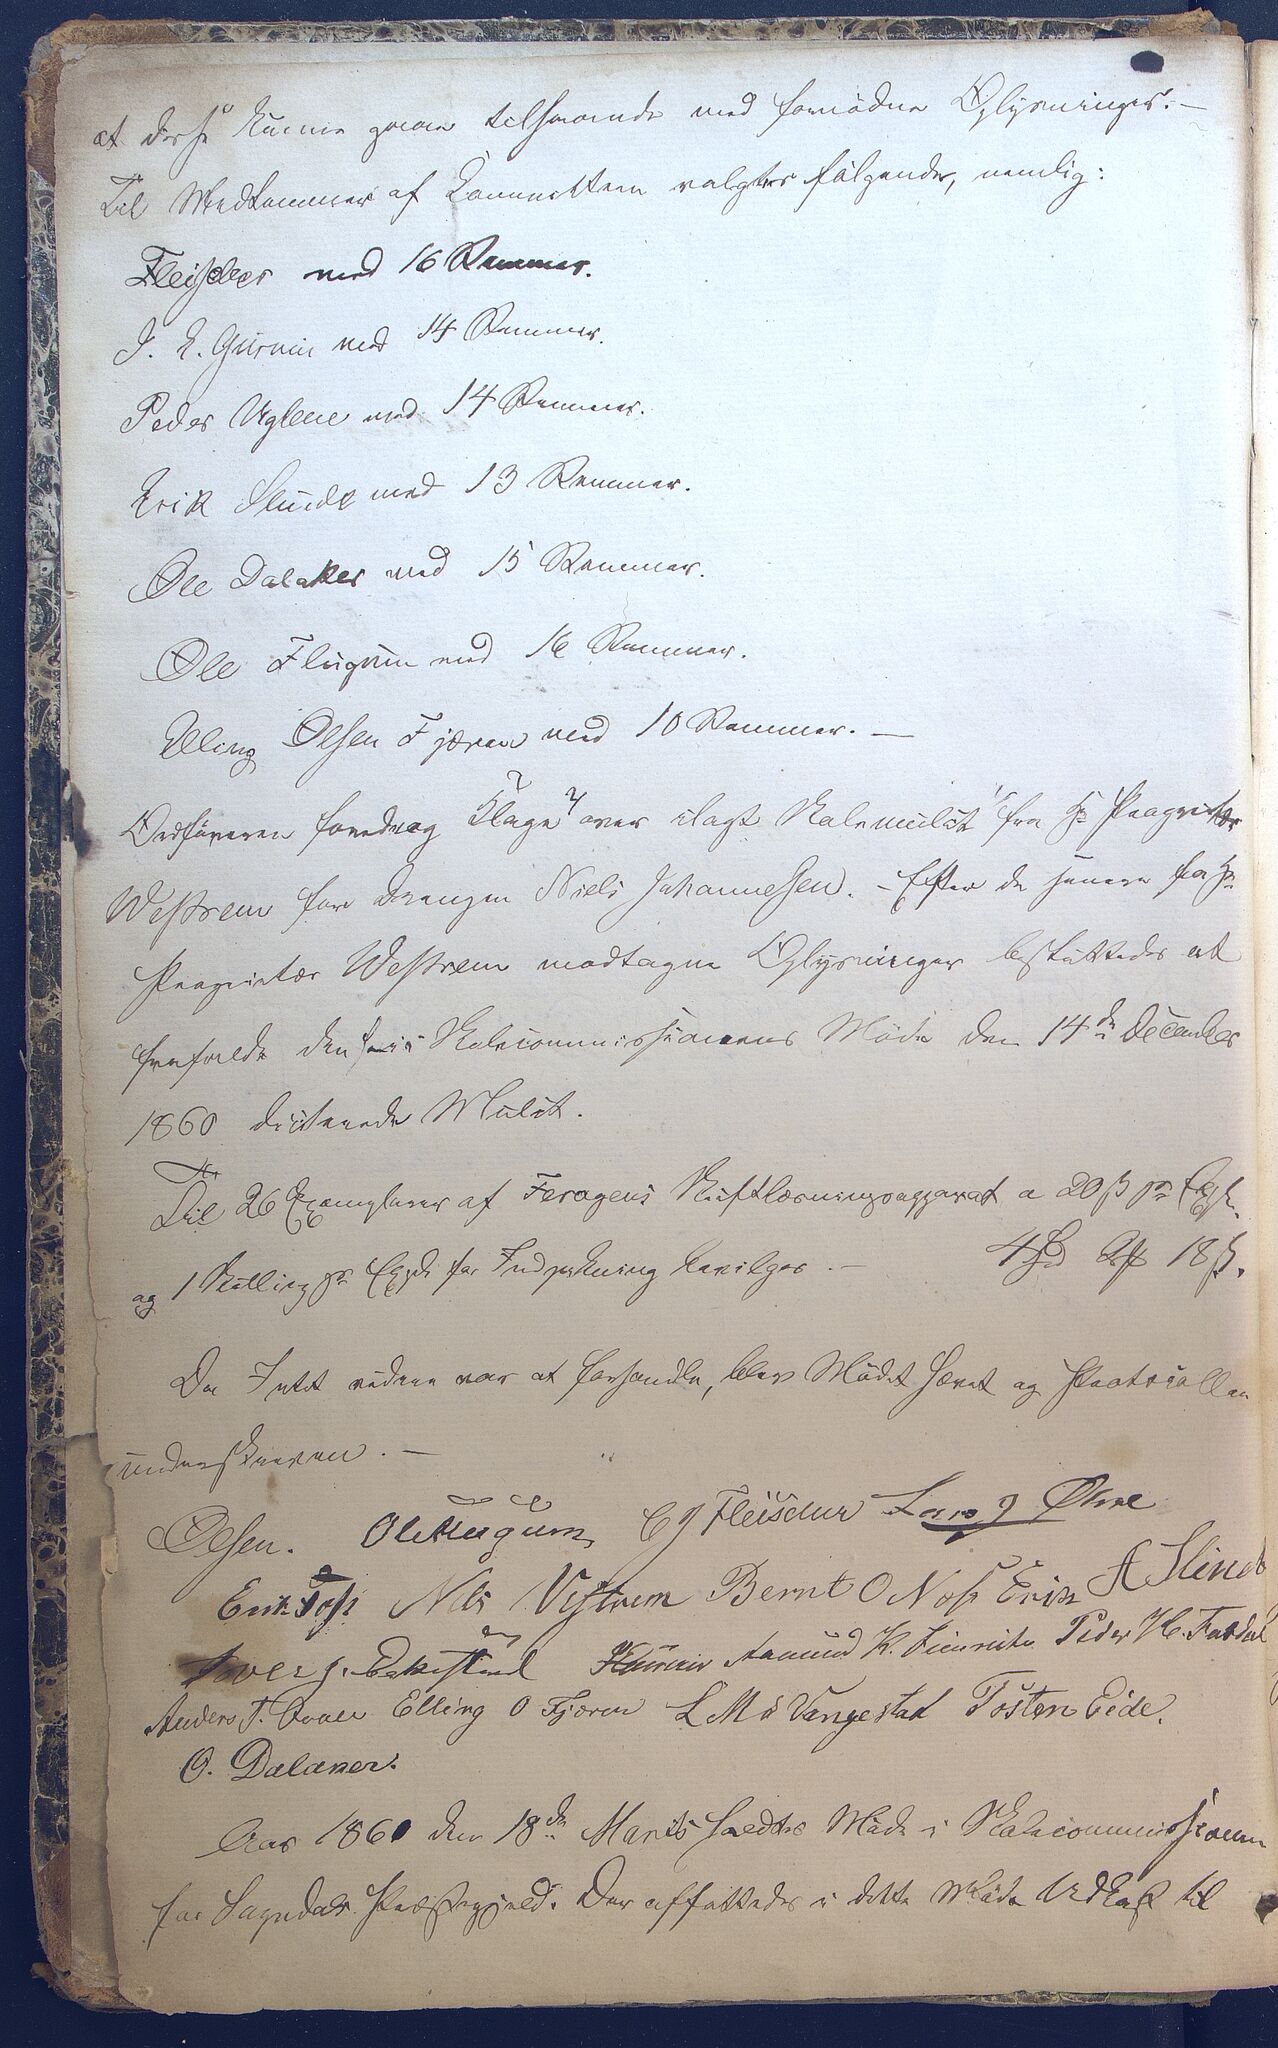 at disse kunne gaaes tilhaande med fornødne Oplysninger. —
Til Medlemmer af Committeen valgtes følgende, nemlig:
Fleischer med 16 Stemmer.
J. E. Husum med 14 Stemmer.
Peder Uglene med 14 Stemmer.
Erik Slinde med 13 Stemmer.
Ole Dalaker med 15 Stemmer.
Ole Flugum med 16 Stemmer.
Elling Olsen Fjæren med 10 Stemmer. —
Ordføreren foredrog Klage over ilagt Skolemulct fra Hr Proprietær
Westrem for Drengen Niels Johannesen. — Efter de senere fra Hr
Proprietær Westrem modtagne Oplysninger besluttedes at
frafalde den i Skolecommissionens Møde den 14de December
1860 dicterede Mulct.
Til 26 Exemplarer af Feragens Skriftlæsningsapparat a 20 ß pr Expl.
og 1 Skilling pr Expl. for Indpakning bevilges. — 4 Spd 2 ₰ 18 ß.
Da Intet videre var at forhandle, blev Mødet hævet og Protocollen
underskreven. —
Olsen. Ole Flugum, C J Fleischer Lars J Øhre
Erik Tofte Nils Vestrem Bernt O Nose Erik A Slinde
Iver J. Eskestrand Husum Aamund K. Kjørnes Peder H. Fardal
Anders T. Ovren Elling O Fjæren L M Vangestad Tosten Eide.
O. Dalaker.
Aar 1861 den 18de Marts holdtes Møde i Skolecommissionen
for Sogndals Præstegjeld. Der affattedes i dette Møde Udkast til